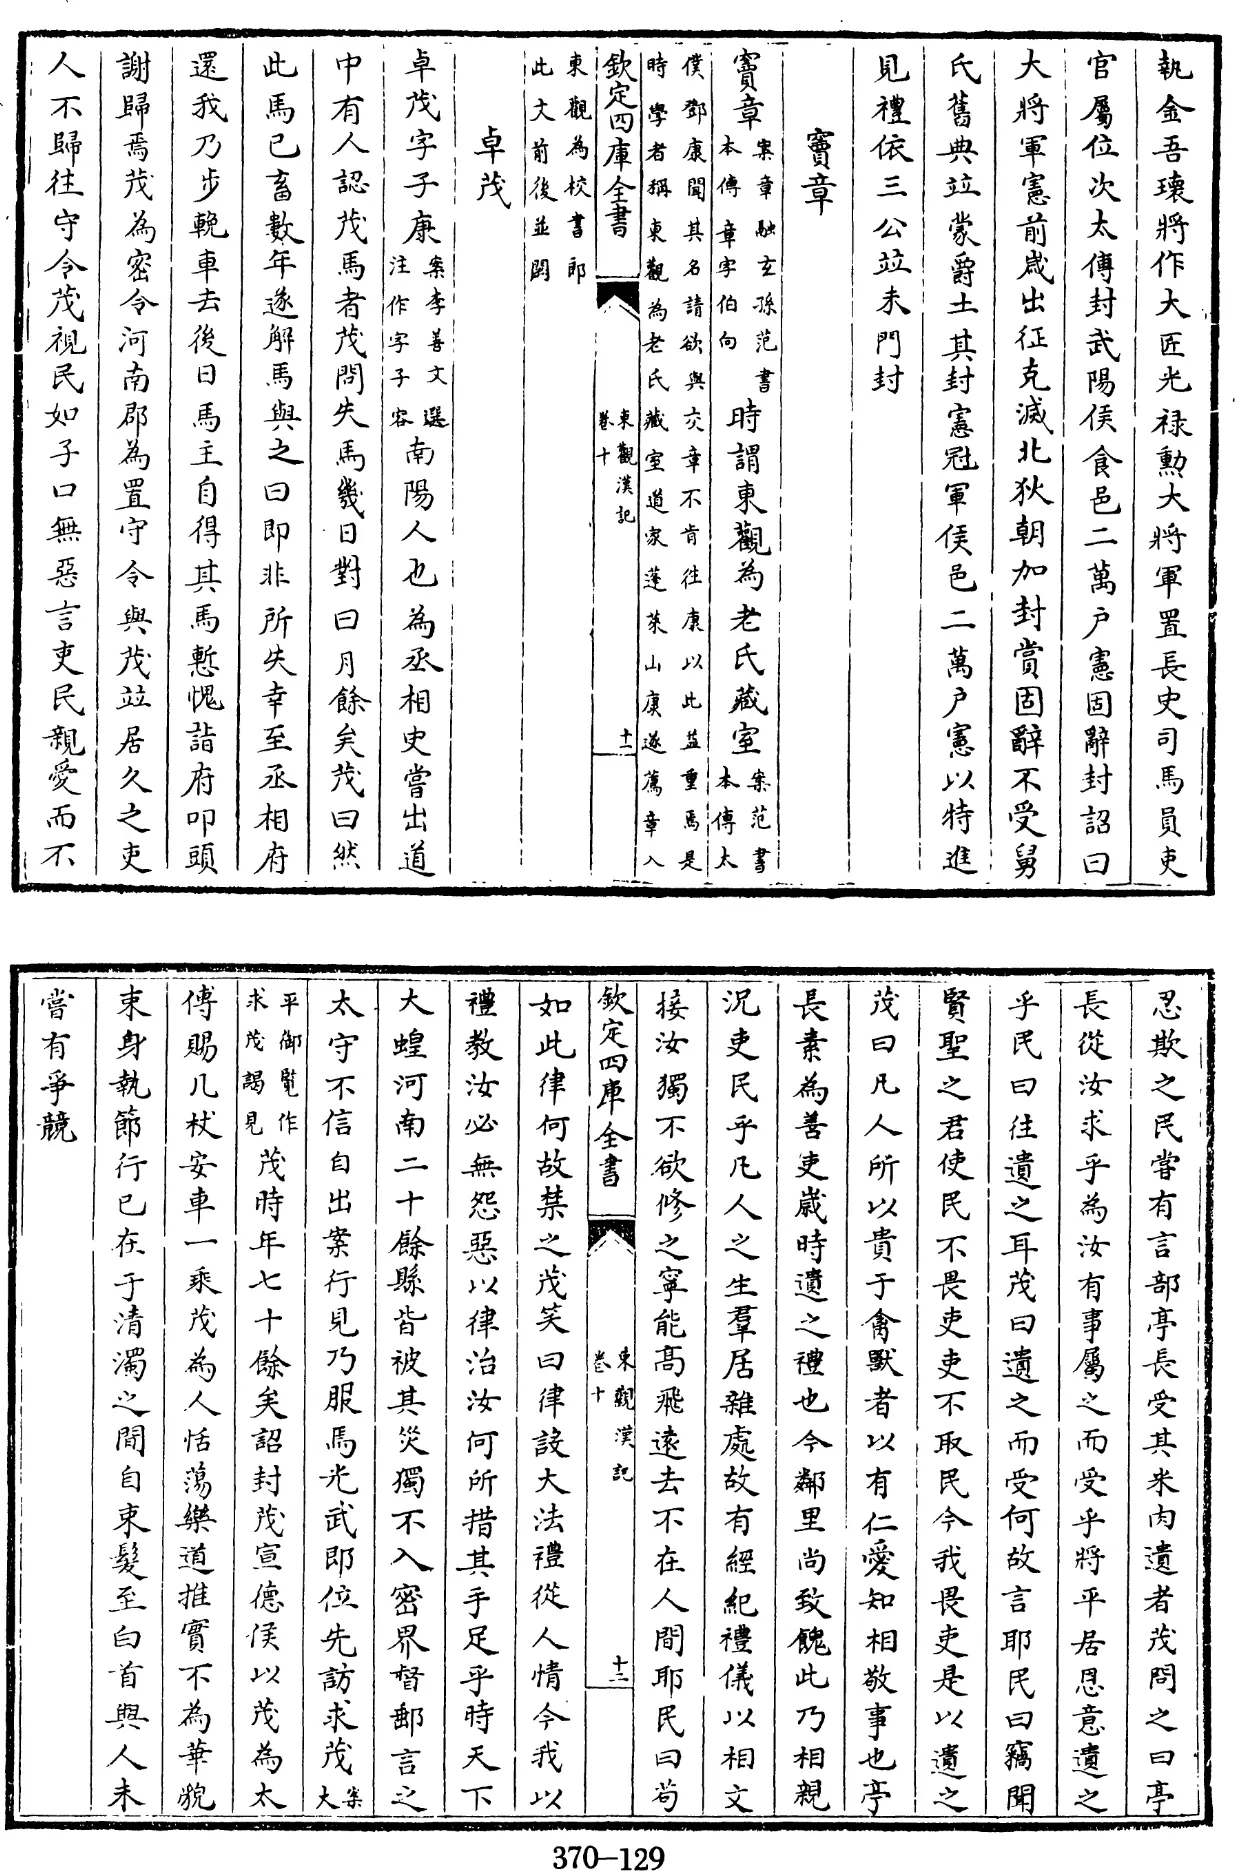 執金吾瓌將作大匠光禄勲大將軍置長史司馬員吏
官屬位次太傅封武陽侯食邑二萬户憲固辭封詔曰
大將軍憲前歲出征克滅北狄朝加封賞固辭不受舅
氏舊典竝蒙爵土其封憲冠軍侯邑二萬户憲以特進
見禮依三公竝未門封
竇章
竇章案章融玄孫范書本傳章字伯向時謂東觀為老氏藏室案范書本傳太
僕鄧康聞其名請欲與交章不肯往康以此益重焉是
時學者稱東觀為老氏藏室道家蓬萊山康遂薦章入
欽定四庫全書
東觀漢記
卷十
十一
東觀為校書郎
此文前後並闕
卓茂
卓茂字子康案李善文選注作字子容南陽人也為丞相史嘗出道
中有人認茂馬者茂問失馬幾日對曰月餘矣茂曰然
此馬已畜數年遂解馬與之曰即非所失幸至丞相府
還我乃步輓車去後日馬主自得其馬慙愧詣府叩頭
謝歸焉茂為密令河南郡為置守令與茂竝居久之吏
人不歸往守令茂視民如子口無惡言吏民親愛而不
忍欺之民嘗有言部亭長受其米肉遺者茂問之曰亭
長從汝求乎為汝有事屬之而受乎將平居恩意遺之
乎民曰往遺之耳茂曰遺之而受何故言耶民曰竊聞
賢聖之君使民不畏吏吏不取民今我畏吏是以遺之
茂曰凡人所以貴于禽獸者以有仁愛知相敬事也亭
長素為善吏歲時遺之禮也今鄰里尚致餽此乃相親
况吏民乎凡人之生羣居雜處故有經紀禮儀以相文
接汝獨不欲修之寧能高飛遠去不在人間耶民曰茍
欽定四庫全書
東觀漢記
卷十
十二
如此律何故禁之茂笑曰律設大法禮從人情今我以
禮教汝必無怨惡以律治汝何所措其手足乎時天下
大蝗河南二十餘縣皆被其災獨不入密界督郵言之
太守不信自出案行見乃服焉光武即位先訪求茂案大
平御覽作求茂謁見茂時年七十餘矣詔封茂宣德侯以茂為太
傅賜几杖安車一乘茂為人恬蕩樂道推實不為華貌
束身執節行已在于清濁之間自束髮至白首與人未
嘗有爭競
370—129